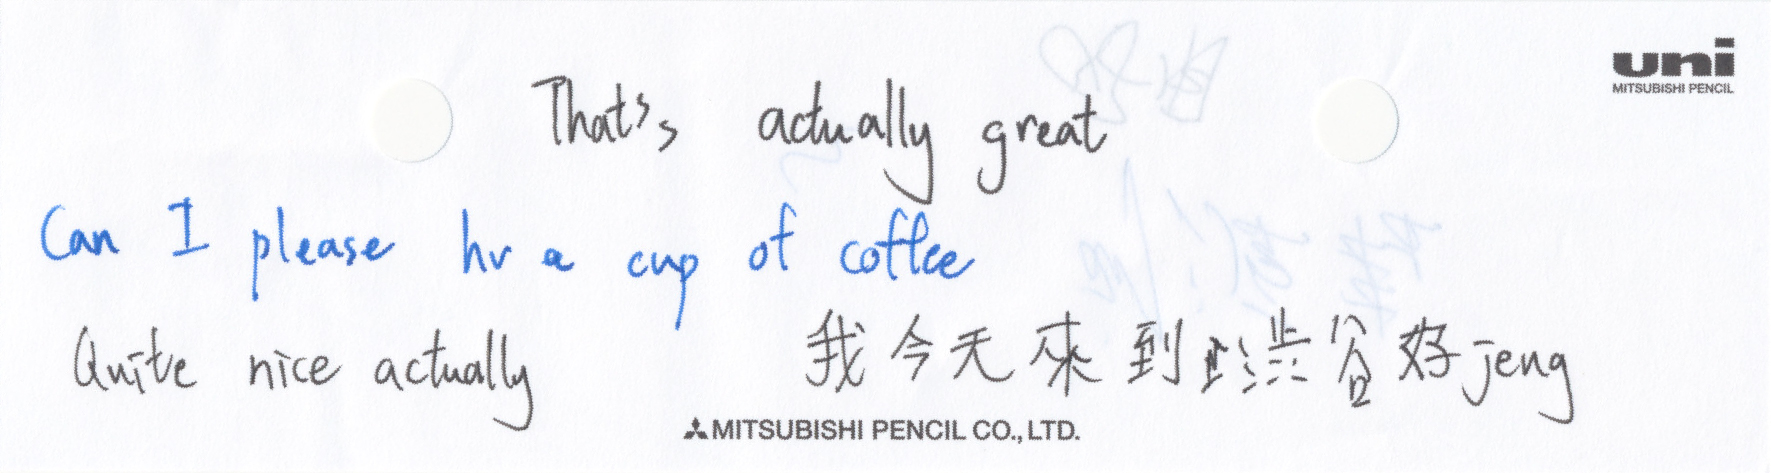 uni
MITSUBISHI PENCIL
That's, actually great
Can I please hv a cup of coffee
Quite nice actually
我今天來到渋谷好jeng
MITSUBISHI PENCIL CO., LTD.